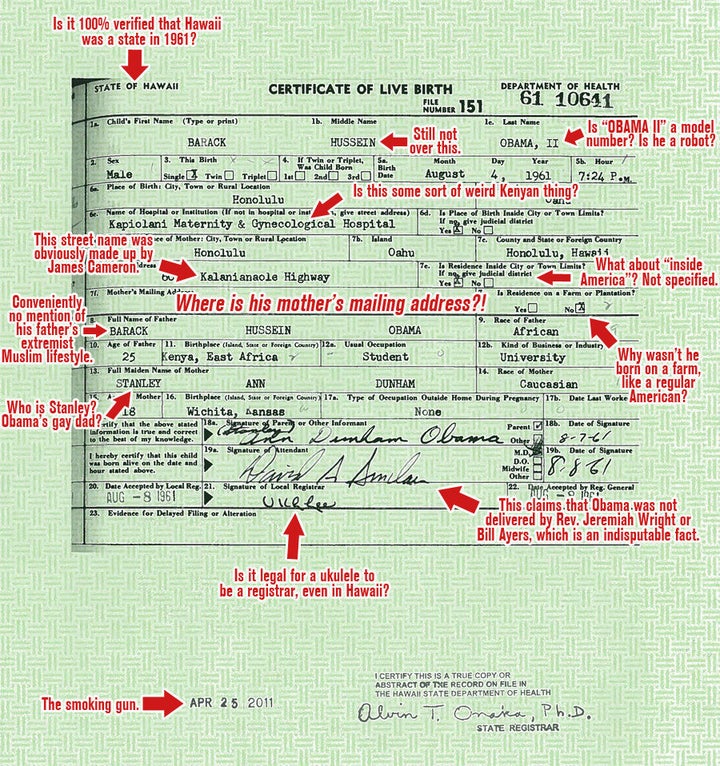 Is it 100% verified that Hawaii
was a state in 1961?
STATE OF HAWAII
CERTIFICATE OF LIVE BIRTH
DEPARTMENT OF HEALTH
FILE
NUMBER 151
61 10641
1a. Child's First Name (Type or print)
1b. Middle Name
1c. Last Name
BARACK
HUSSEIN
OBAMA, II
Still not
over this.
Is "OBAMA II" a model
number? Is he a robot?
2. Sex
Male
3. This Birth
Single X Twin Triplet
4. If Twin or Triplet,
Was Child Born
1st 2nd 3rd
5a.
Birth
Date
Month Day Year
August 4, 1961
5b. Hour
7:24 P.M.
6a. Place of Birth: City, Town or Rural Location
Honolulu
Is this some sort of weird Kenyan thing?
6c. Name of Hospital or Institution (If not in hospital or give street address)
Kapiolani Maternity & Gynecological Hospital
6d. Is Place of Birth Inside City or Town Limits?
If no, give judicial district
Yes X No
This street name was
obviously made up by
James Cameron.
of Mother: City, Town or Rural Location
Honolulu
7b. Island
Oahu
7c. County and State or Foreign Country
Honolulu, Hawaii
Kalanianaole Highway
7e. Is Residence Inside City or Town Limits?
If no, give judicial district
Yes X No
What about "inside
America"? Not specified.
7f. Mother's Mailing
Where is his mother's mailing address?!
Is Residence on a Farm or Plantation?
Yes No X
Conveniently
no mention of
his father's
extremist
Muslim lifestyle.
8. Full Name of Father
BARACK HUSSEIN OBAMA
9. Race of Father
African
10. Age of Father
25
11. Birthplace (Island, State or Foreign Country)
Kenya, East Africa
12a. Usual Occupation
Student
12b. Kind of Business or Industry
University
Why wasn't he
born on a farm,
like a regular
American?
13. Full Maiden Name of Mother
STANLEY ANN DUNHAM
14. Race of Mother
Caucasian
Who is Stanley?
Obama's gay dad?
15. Mother
18
16. Birthplace (Island, State or Foreign Country)
Wichita, Kansas
17a. Type of Occupation Outside Home During Pregnancy
None
17b. Date Last Worked
I certify that the above stated
information is true and correct
to the best of my knowledge.
18a. Signature of Parent or Other Informant
(Stanley) Ann Dunham Obama
Parent
Other
18b. Date of Signature
8-7-61
I hereby certify that this child
was born alive on the date and
hour stated above.
19a. Signature of Attendant
David A Sinclair
M.D.
D.O.
Midwife
Other
19b. Date of Signature
8-8-61
20. Date Accepted by Local Reg.
AUG -8 1961
21. Signature of Local Registrar
UKLee
22. Date Accepted by Reg. General
23. Evidence for Delayed Filing or Alteration
This claims that Obama was not
delivered by Rev. Jeremiah Wright or
Bill Ayers, which is an indisputable fact.
Is it legal for a ukulele to
be a registrar, even in Hawaii?
The smoking gun.
APR 25 2011
I CERTIFY THIS IS A TRUE COPY OR
ABSTRACT OF THE RECORD ON FILE IN
THE HAWAII STATE DEPARTMENT OF HEALTH
Alvin T. Onaka, Ph.D.
STATE REGISTRAR